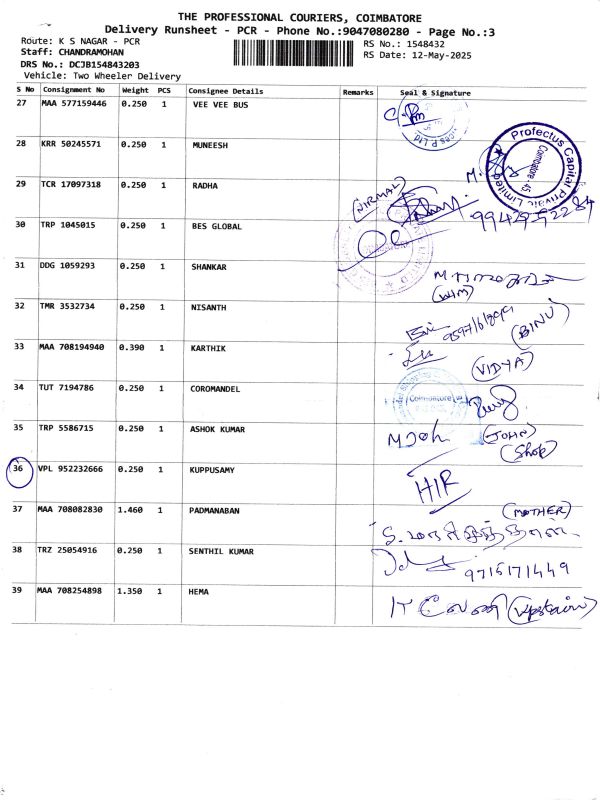 THE PROFESSIONAL COURIERS, COIMBATORE
Delivery Runsheet - PCR - Phone No.:9047080280 - Page No.:3
Route: K S NAGAR - PCR
RS No.: 1548432
Staff: CHANDRAMOHAN
RS Date: 12-May-2025
DRS No.: DCJB154843203
Vehicle: Two Wheeler Delivery
S No Consignment No Weight PCS Consignee Details Remarks Seal & Signature
27 MAA 577159446 0.250 1 VEE VEE BUS
28 KRR 50245571 0.250 1 MUNEESH
Profectus Capital Private Limited
Coimbatore - 45
29 TCR 17097318 0.250 1 RADHA
(NIRMAL)
30 TRP 1045015 0.250 1 BES GLOBAL
31 DDG 1059293 0.250 1 SHANKAR
32 TMR 3532734 0.250 1 NISANTH
(BINU)
33 MAA 708194940 0.390 1 KARTHIK
(VIDYA)
34 TUT 7194786 0.250 1 COROMANDEL
Coimbatore
35 TRP 5586715 0.250 1 ASHOK KUMAR
(JOHN)
(Shop)
36 VPL 952232666 0.250 1 KUPPUSAMY
HIR
37 MAA 708082830 1.460 1 PADMANABAN
(MOTHER)
38 TRZ 25054916 0.250 1 SENTHIL KUMAR
9715171449
39 MAA 708254898 1.350 1 HEMA
(Upstairs)